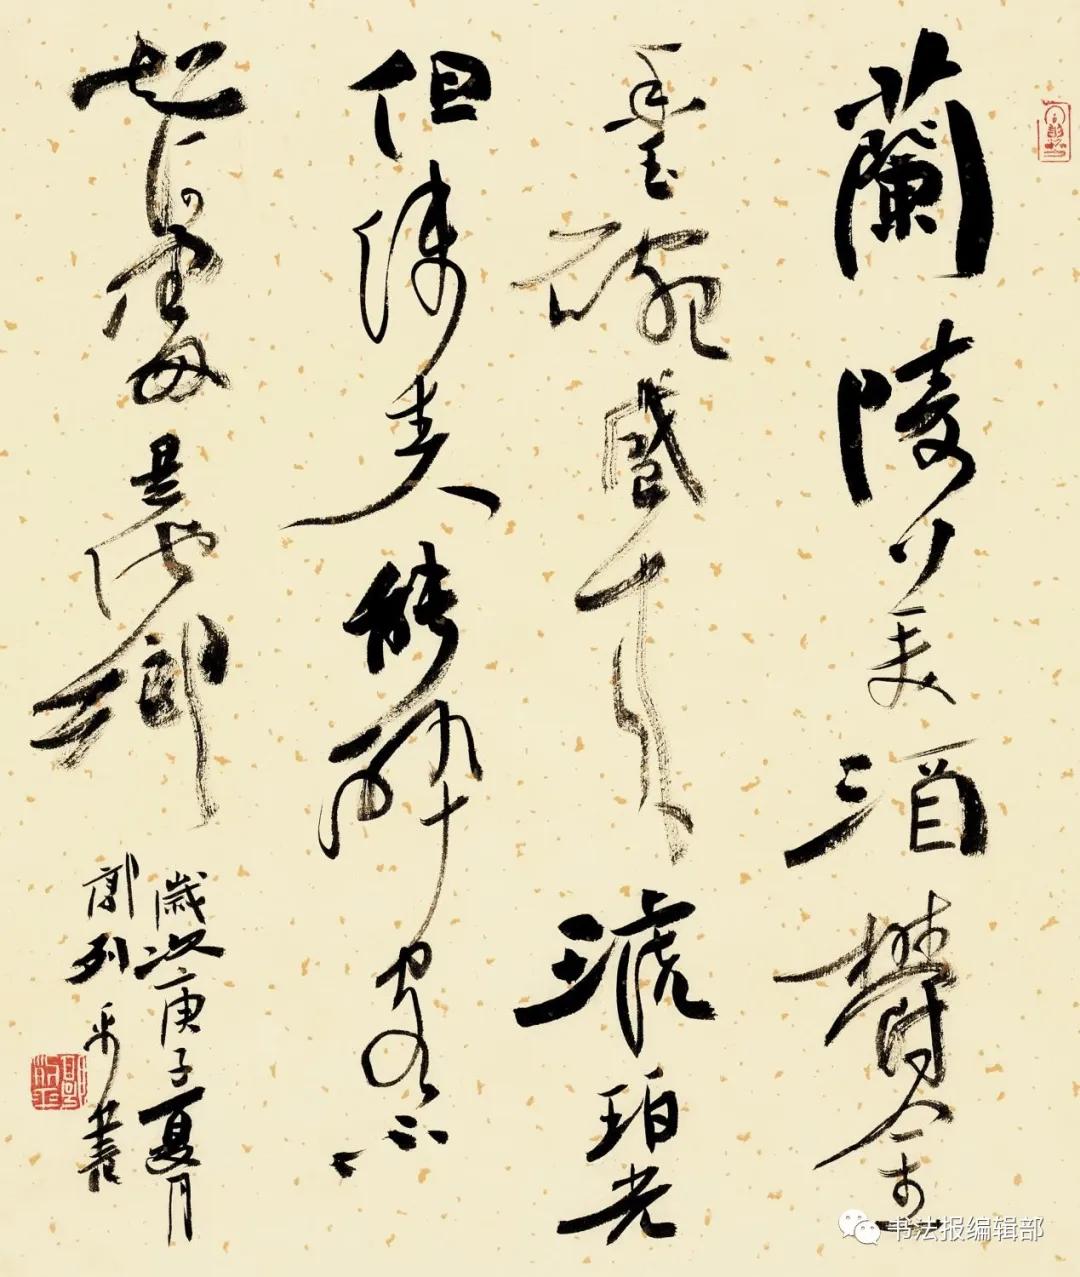 蘭陵美酒鬱金
香玉碗盛來琥珀光
但使主人能醉客不
知何處是他鄉
歲次庚子夏月
郭列平書
书法报编辑部